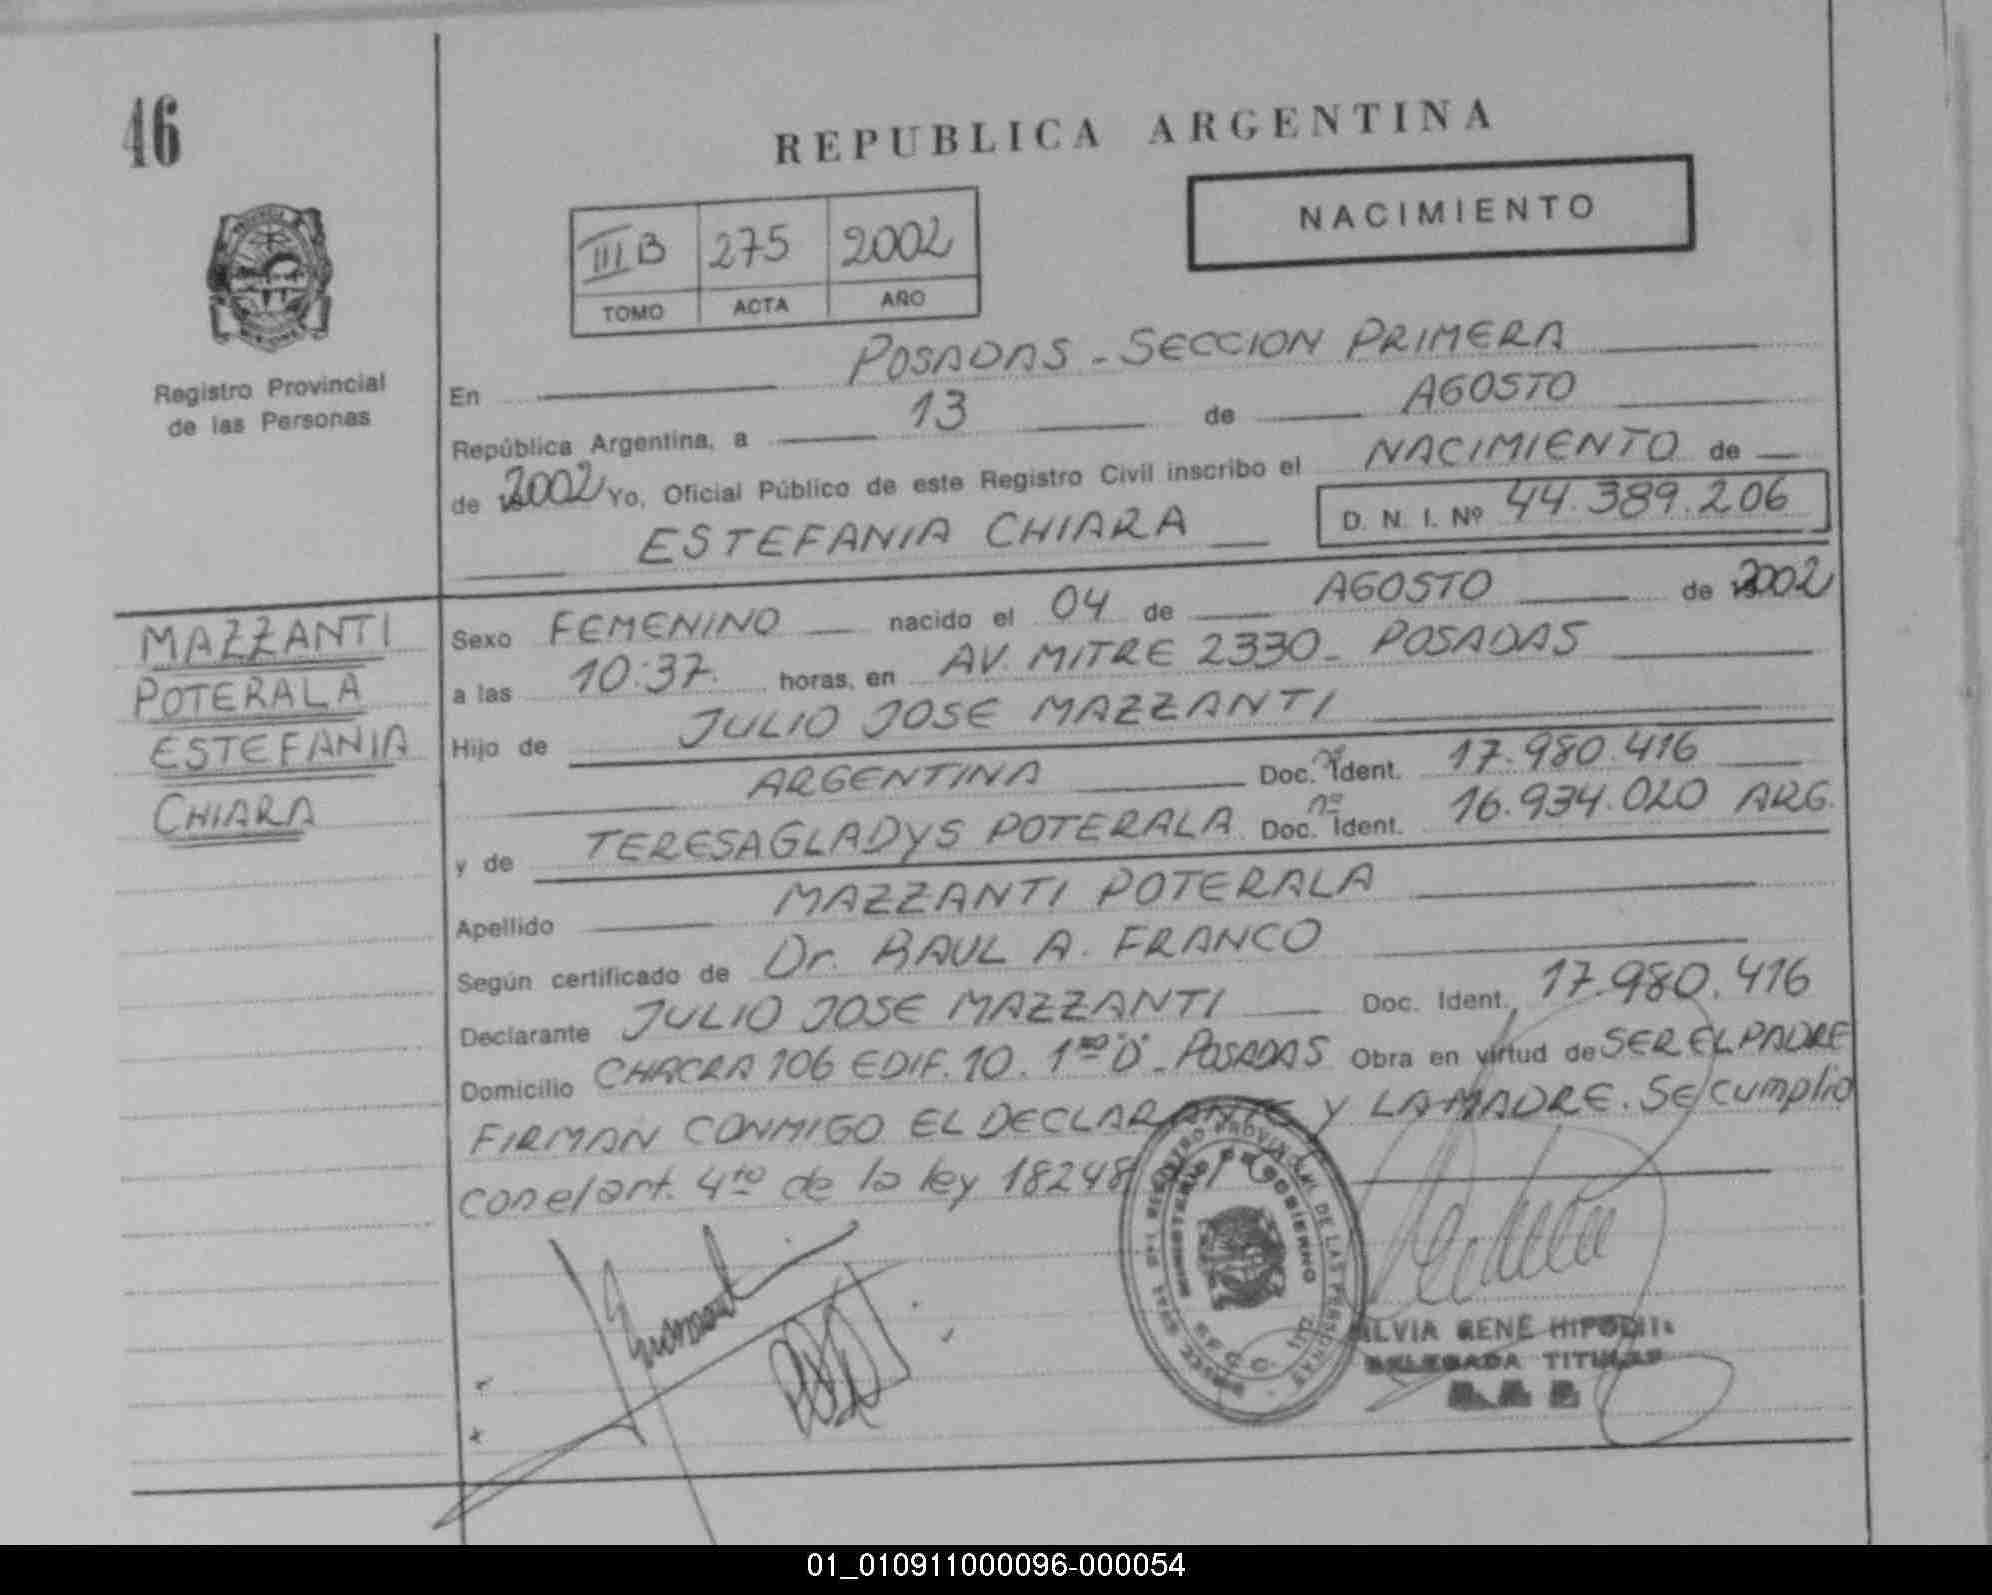 46
REPUBLICA ARGENTINA
NACIMIENTO
III B 275 2002
TOMO ACTA AÑO
Registro Provincial
de las Personas
En POSADAS - SECCION PRIMERA
República Argentina, a 13 de AGOSTO
de 2002 Yo, Oficial Público de este Registro Civil inscribo el NACIMIENTO de
ESTEFANIA CHIARA D. N. I. Nº 44.389.206
MAZZANTI
POTERALA
ESTEFANIA
CHIARA
Sexo FEMENINO nacido el 04 de AGOSTO de 2002
a las 10:37. horas, en AV. MITRE 2330 - POSADAS
Hijo de JULIO JOSE MAZZANTI
ARGENTINA Doc. nº Ident. 17.980.416
y de TERESA GLADYS POTERALA Doc. nº Ident. 16.934.020 ARG.
Apellido MAZZANTI POTERALA
Según certificado de Dr. RAUL A. FRANCO
Declarante JULIO JOSE MAZZANTI Doc. Ident. 17.980.416
Domicilio CHACRA 106 EDIF. 10. 1ro "D" - POSADAS Obra en virtud de SER EL PADRE
FIRMAN CONMIGO EL DECLARANTE Y LA MADRE. Se cumplio
con el art. 4to de la ley 18248
REGISTRO PROVINCIAL DE LAS PERSONAS
MINISTERIO DE GOBIERNO
SILVIA RENE
DELEGADA TITULAR
01_010911000096-000054